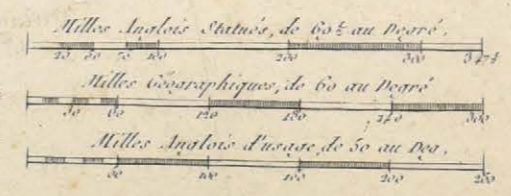 Milles Anglois Statués, de 69½ au Degré.
20 50 70 100 200 300 347½
Milles Géographiques, de 60 au Degré
30 60 120 180 240 300
Milles Anglois d'usage, de 50 au Deg.
50 100 150 200 250